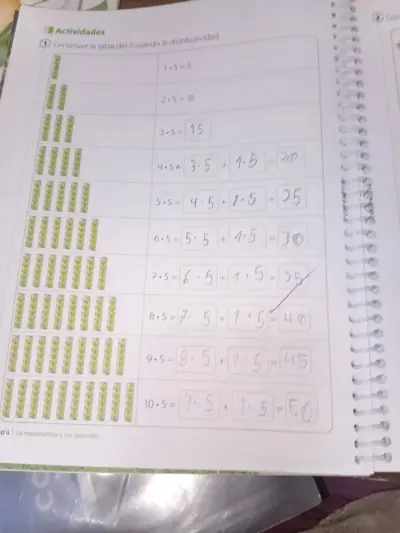 Actividades
1 Construye la tabla del 5 usando la distributividad.
1 • 5 = 5
2 • 5 = 10
3 • 5 = 15
4 • 5 = 3 · 5 + 1 · 5 = 20
5 • 5 = 4 · 5 + 1 · 5 = 25
6 • 5 = 5 · 5 + 1 · 5 = 30
7 • 5 = 6 · 5 + 1 · 5 = 35
8 • 5 = 7 · 5 + 1 · 5 = 40
9 • 5 = 8 · 5 + 1 · 5 = 45
10 • 5 = · 5 + 1 · 5 = 50
d 4 | La matemática y los deportes
2